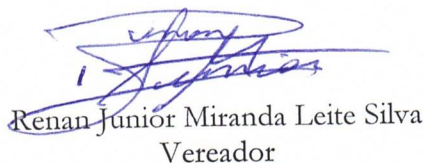 Renan Junior Miranda Leite Silva
Vereador